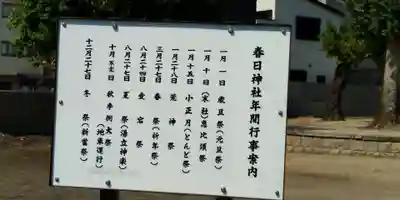 春日神社年間行事案内
一月一日 歳旦祭(元旦祭)
一月十日 (末社)恵比須祭
一月十五日 小正月(とんど祭)
一月二十八日 荒神祭
三月二十七日 春祭(祈年祭)
八月二十四日 愛宕祭
八月二十七日 夏祭(湯立神楽)
十月 秋季例大祭(地車運行)
十二月二十七日 冬祭(新嘗祭)